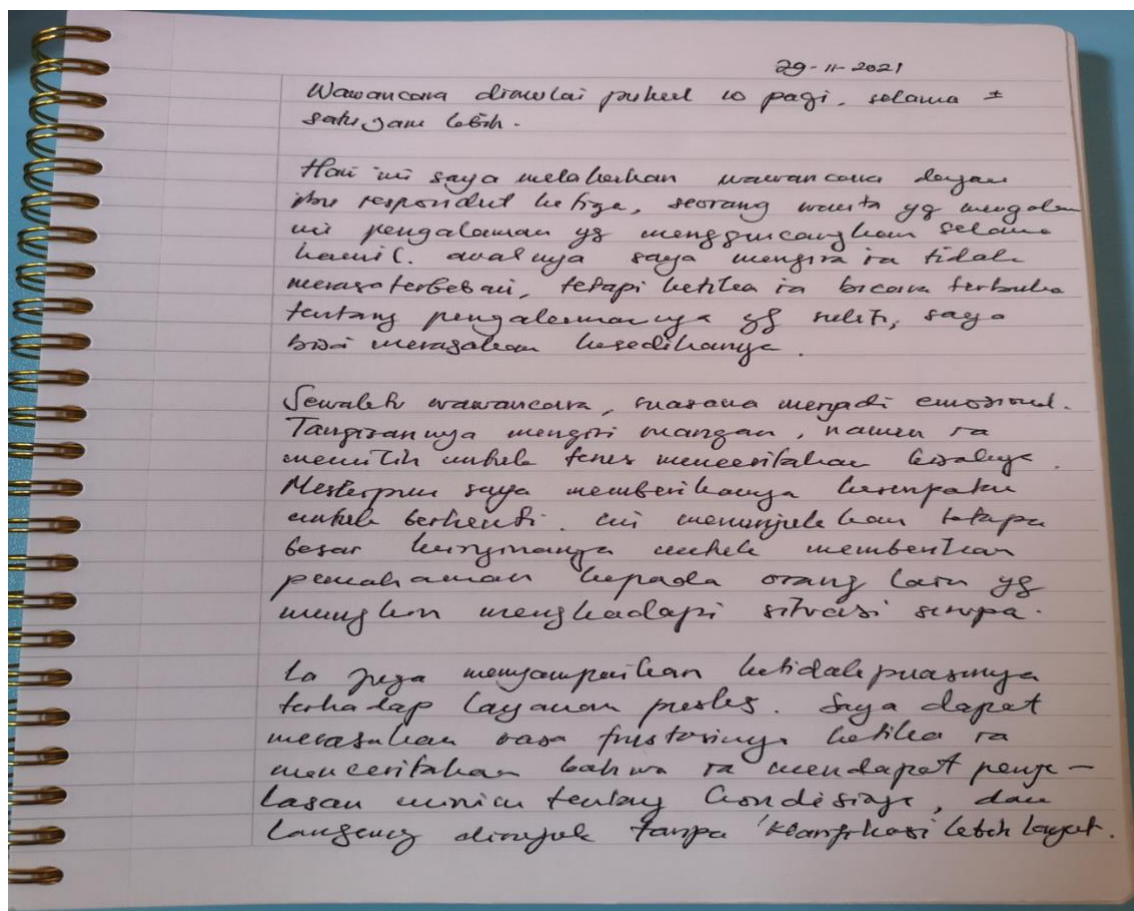 29-11-2021
Wawancara dimulai pukul 10 pagi, selama ±
satu jam lebih.
Hari ini saya melakukan wawancara dengan
ibu respondut ketiga, seorang wanita yg mengala
mi pengalaman yg mengguncangkan selama
hamil. awalnya saya mengira ia tidak
merasa terbebani, tetapi ketika ia bicara terbuka
tentang pengalamannya yg sulit, saya
bisa merasakan kesedihanya.
Sewaktu wawancara, suasana menjadi emosional.
Tangisannya mengisi ruangan, namun ia
memilih untuk terus menceritakan kisahnya.
Meskipun saya memberikannya kesempatan
untuk berhenti. ini menunjukkan betapa
besar keinginannya untuk memberikan
pemahaman kepada orang lain yg
mungkin menghadapi situasi serupa.
Ia juga menyampaikan ketidakpuasannya
terhadap layanan puskes. Saya dapat
merasakan rasa frustasinya ketika ia
menceritakan bahwa ia mendapat penje-
lasan minim tentang kondisinya, dan
langsung dirujuk tanpa 'klarifikasi lebih lanjut.